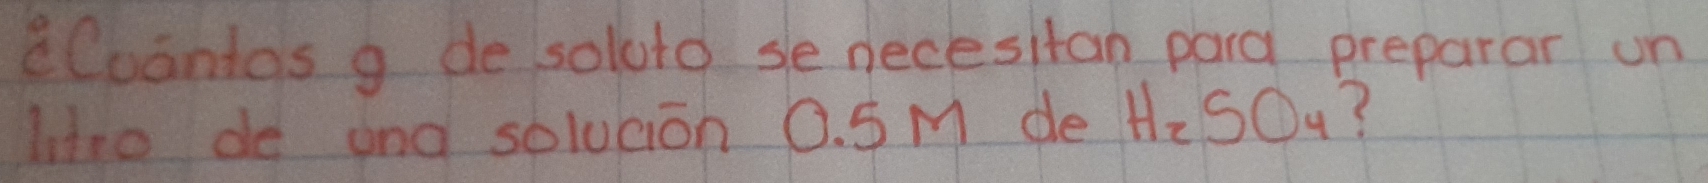 ¿Cuántos g de soluto se necesitan para preparar un
litro de una solución 0.5 M de H₂SO₄?